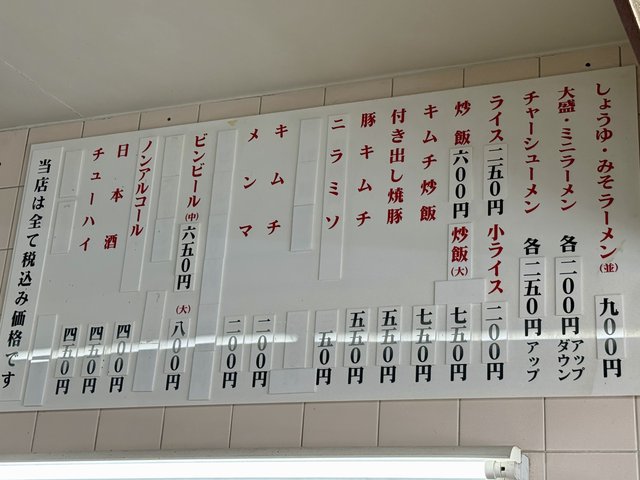 しょうゆ・みそラーメン(並) 九〇〇円
大盛・ミニラーメン 各二〇〇円アップダウン
チャーシューメン 各二五〇円アップ
ライス二五〇円 小ライス二〇〇円
炒飯六〇〇円 炒飯(大) 七五〇円
キムチ炒飯 七五〇円
付き出し焼豚 五五〇円
豚キムチ 五五〇円
ニラミソ 五〇円
キムチ 二〇〇円
メンマ 二〇〇円
ビンビール(中)六五〇円 (大)八〇〇円
ノンアルコール 四〇〇円
日本酒 四五〇円
チューハイ 四五〇円
当店は全て税込み価格です